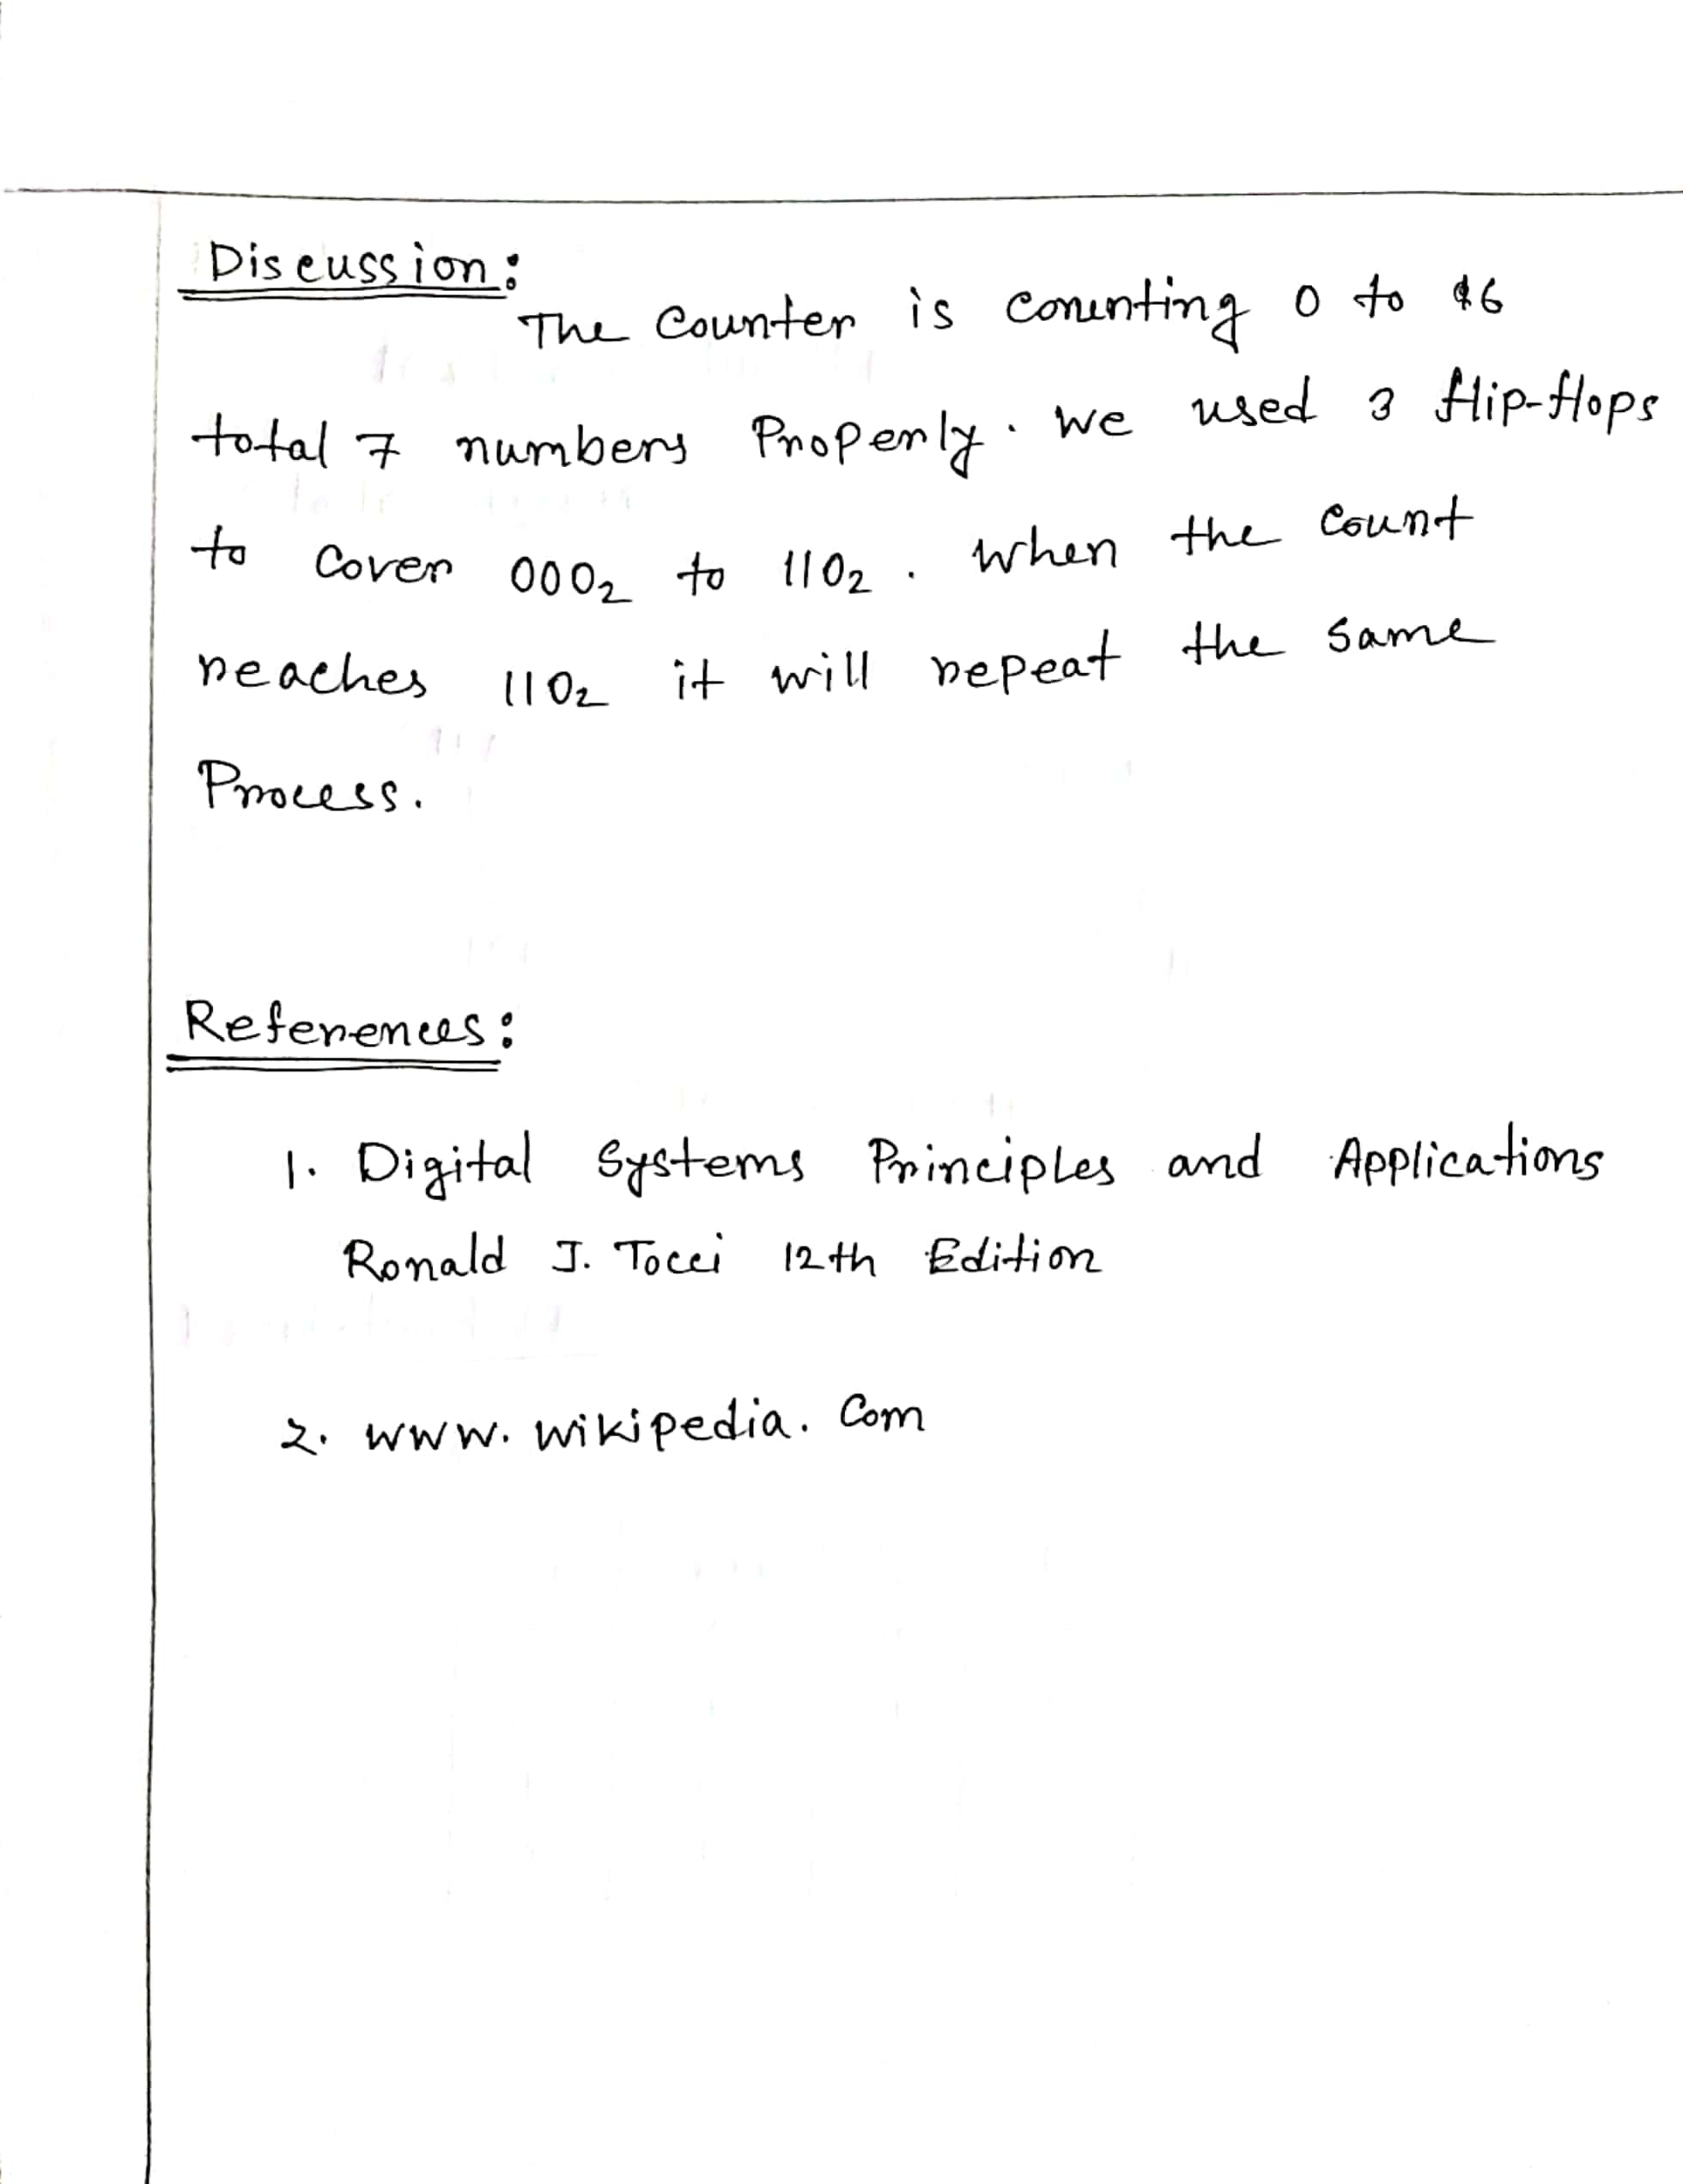 Discussion:
The Counter is counting 0 to 6
total 7 numbers Properly. We used 3 flip-flops
to Cover 000₂ to 110₂. When the count
reaches 110₂ it will repeat the same
Process.
References:
1. Digital Systems Principles and Applications
Ronald J. Tocci 12th Edition
2. www.wikipedia.Com